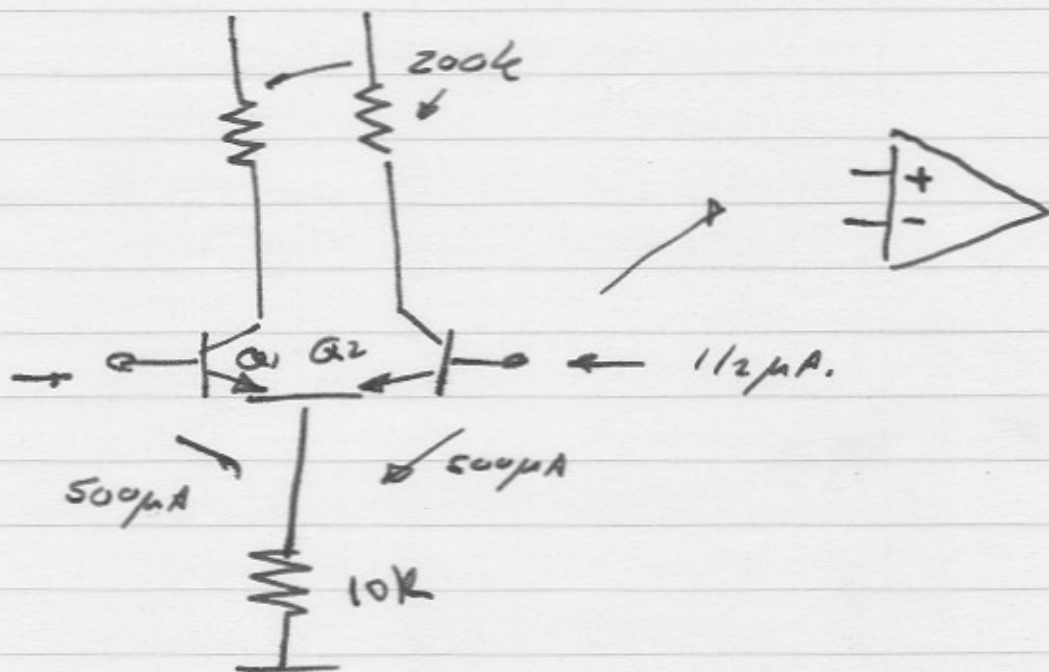 200k
+
-
Q1 Q2
1/2 µA.
500µA
500µA
10k